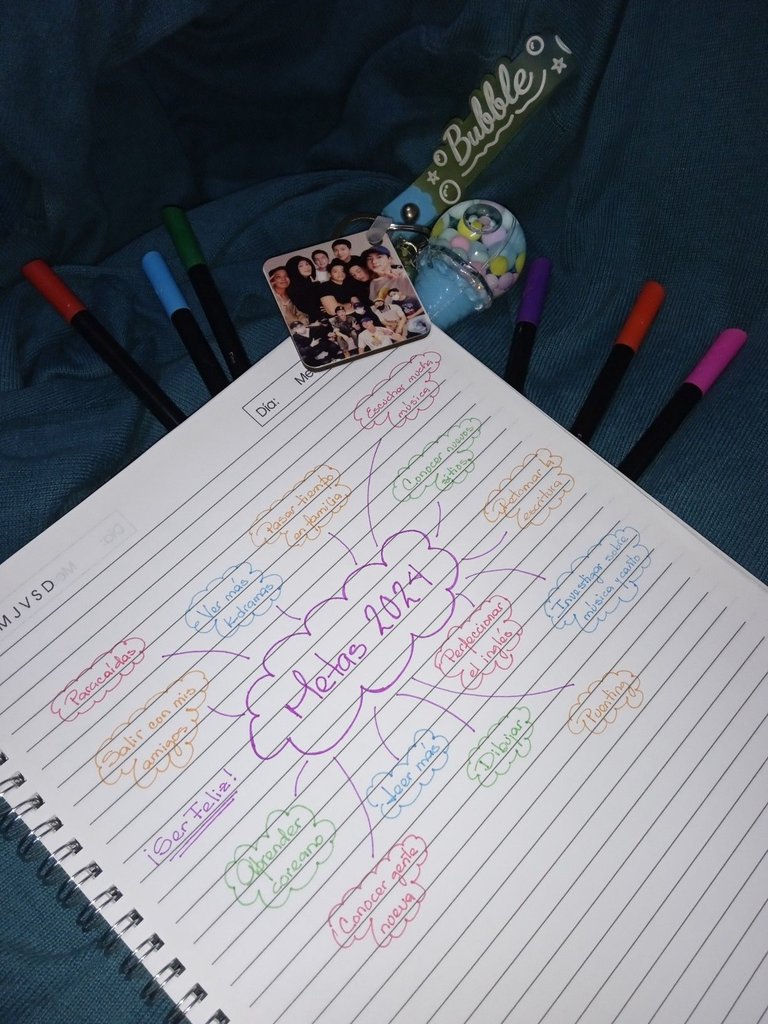 Bubble
Día:
Me
MJVSD
Escuchar mucha
música
Conocer nuevos
sitios
Retomar la
escritura
Pasar tiempo
en familia
Ver más
Kdramas
Investigar sobre
música y canto
Metas 2024
Perfeccionar
el inglés
Paracaídas
Salir con mis
amigos
Puenting
Dibujar
Leer más
¡Ser Feliz!
Aprender
coreano
Conocer gente
nueva